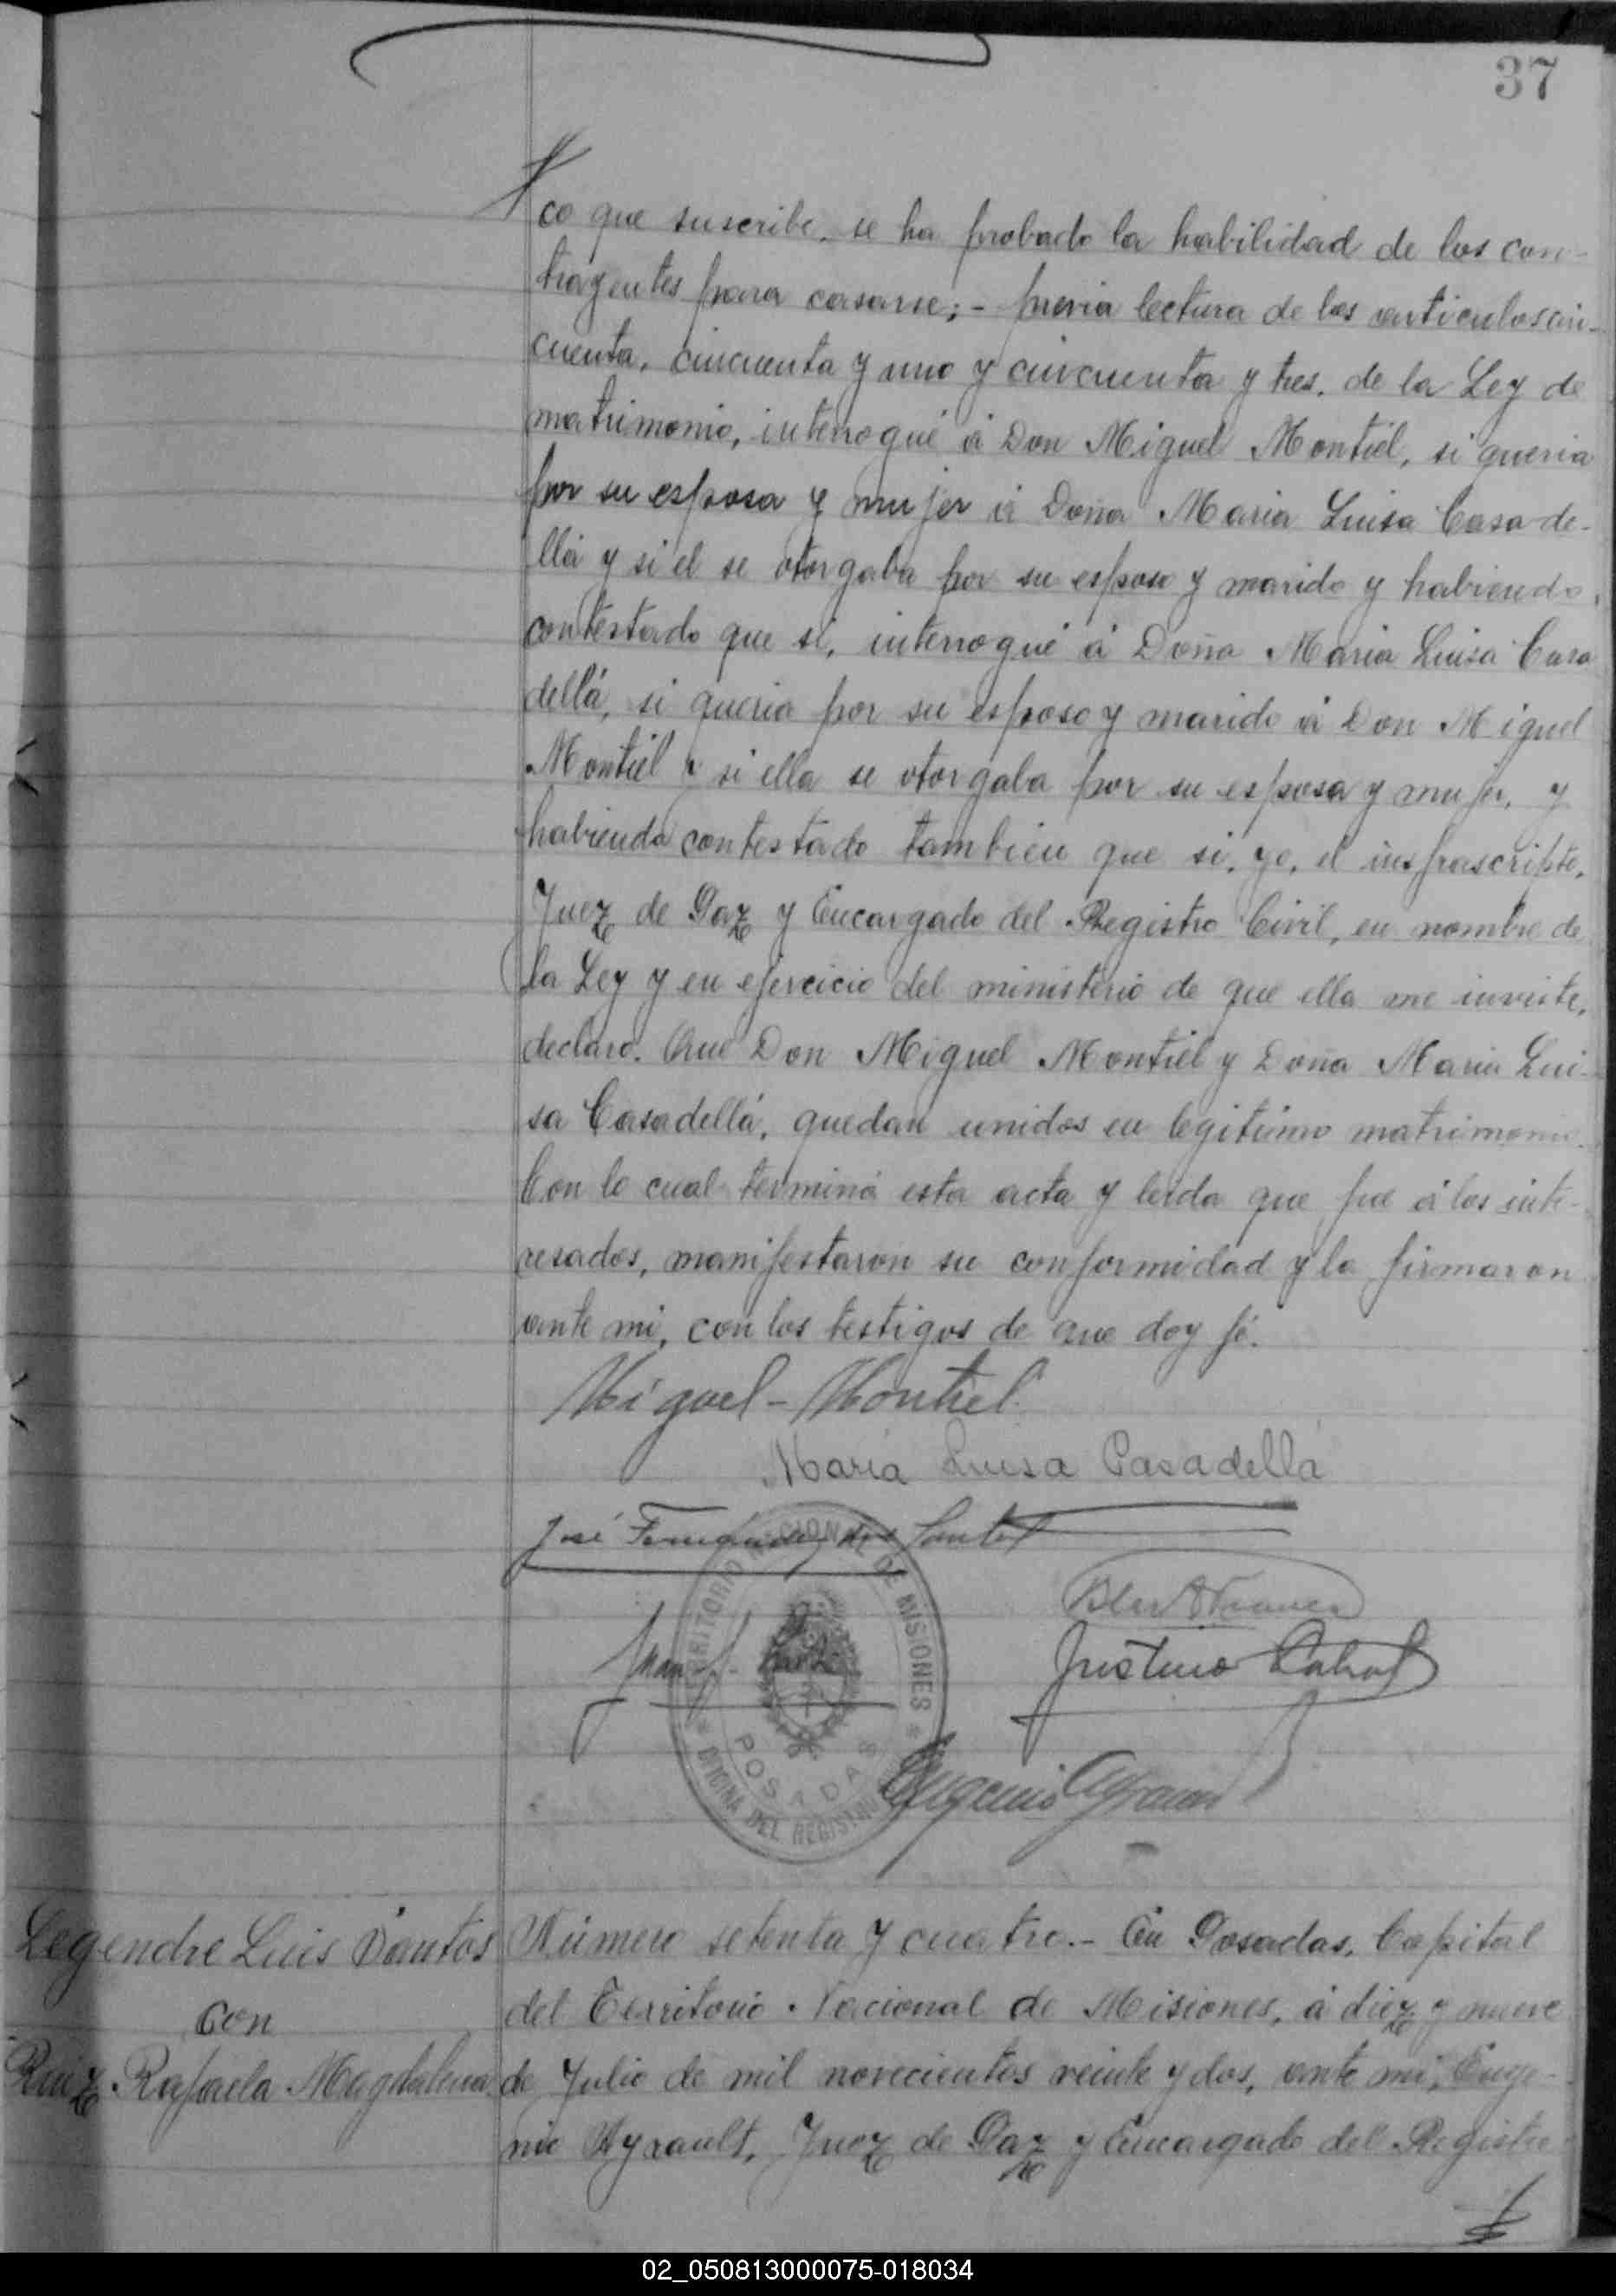 37
co que suscribe, se ha probado la habilidad de los con-
trayentes para casarse; - previa lectura de los articulos cin-
cuenta, cincuenta y uno y cincuenta y tres, de la Ley de
matrimonio, interrogué á Don Miguel Montiel, si queria
por su esposa y mujer á Doña Maria Luisa Casade-
llá y si el se otorgaba por su esposo y marido y habiendo
contestado que si, interrogué á Doña Maria Luisa Casa
dellá, si queria por su esposo y marido á Don Miguel
Montiel y si ella se otorgaba por su esposa y mujer, y
habiendo contestado tambien que si, yo, el infrascripto,
Juez de Paz y Encargado del Registro Civil, en nombre de
la Ley y en ejercicio del ministerio de que ella me inviste,
declaro. Que Don Miguel Montiel y Doña Maria Lui-
sa Casadellá, quedan unidos en legitimo matrimonio.
Con lo cual terminó esta acta y leida que fué á los inte-
resados, manifestaron su conformidad y la firmaron
ante mi, con los testigos de que doy fé.
Miguel - Montiel
Maria Luisa Casadellá
José Fernández dos Santos
Juan
Justino Cabral
TERRITORIO NACIONAL DE MISIONES
OFICINA DEL REGISTRO
POSADAS
Eugenio Ayrault
Legendre Luis Santos
con
Ruiz Rafaela Magdalena
Número setenta y cuatro.- En Posadas, Capital
del Territorio Nacional de Misiones, á diez y nueve
de Julio de mil novecientos veinte y dos, ante mi, Euge-
nio Ayrault, Juez de Paz y Encargado del Registro
02_050813000075-018034